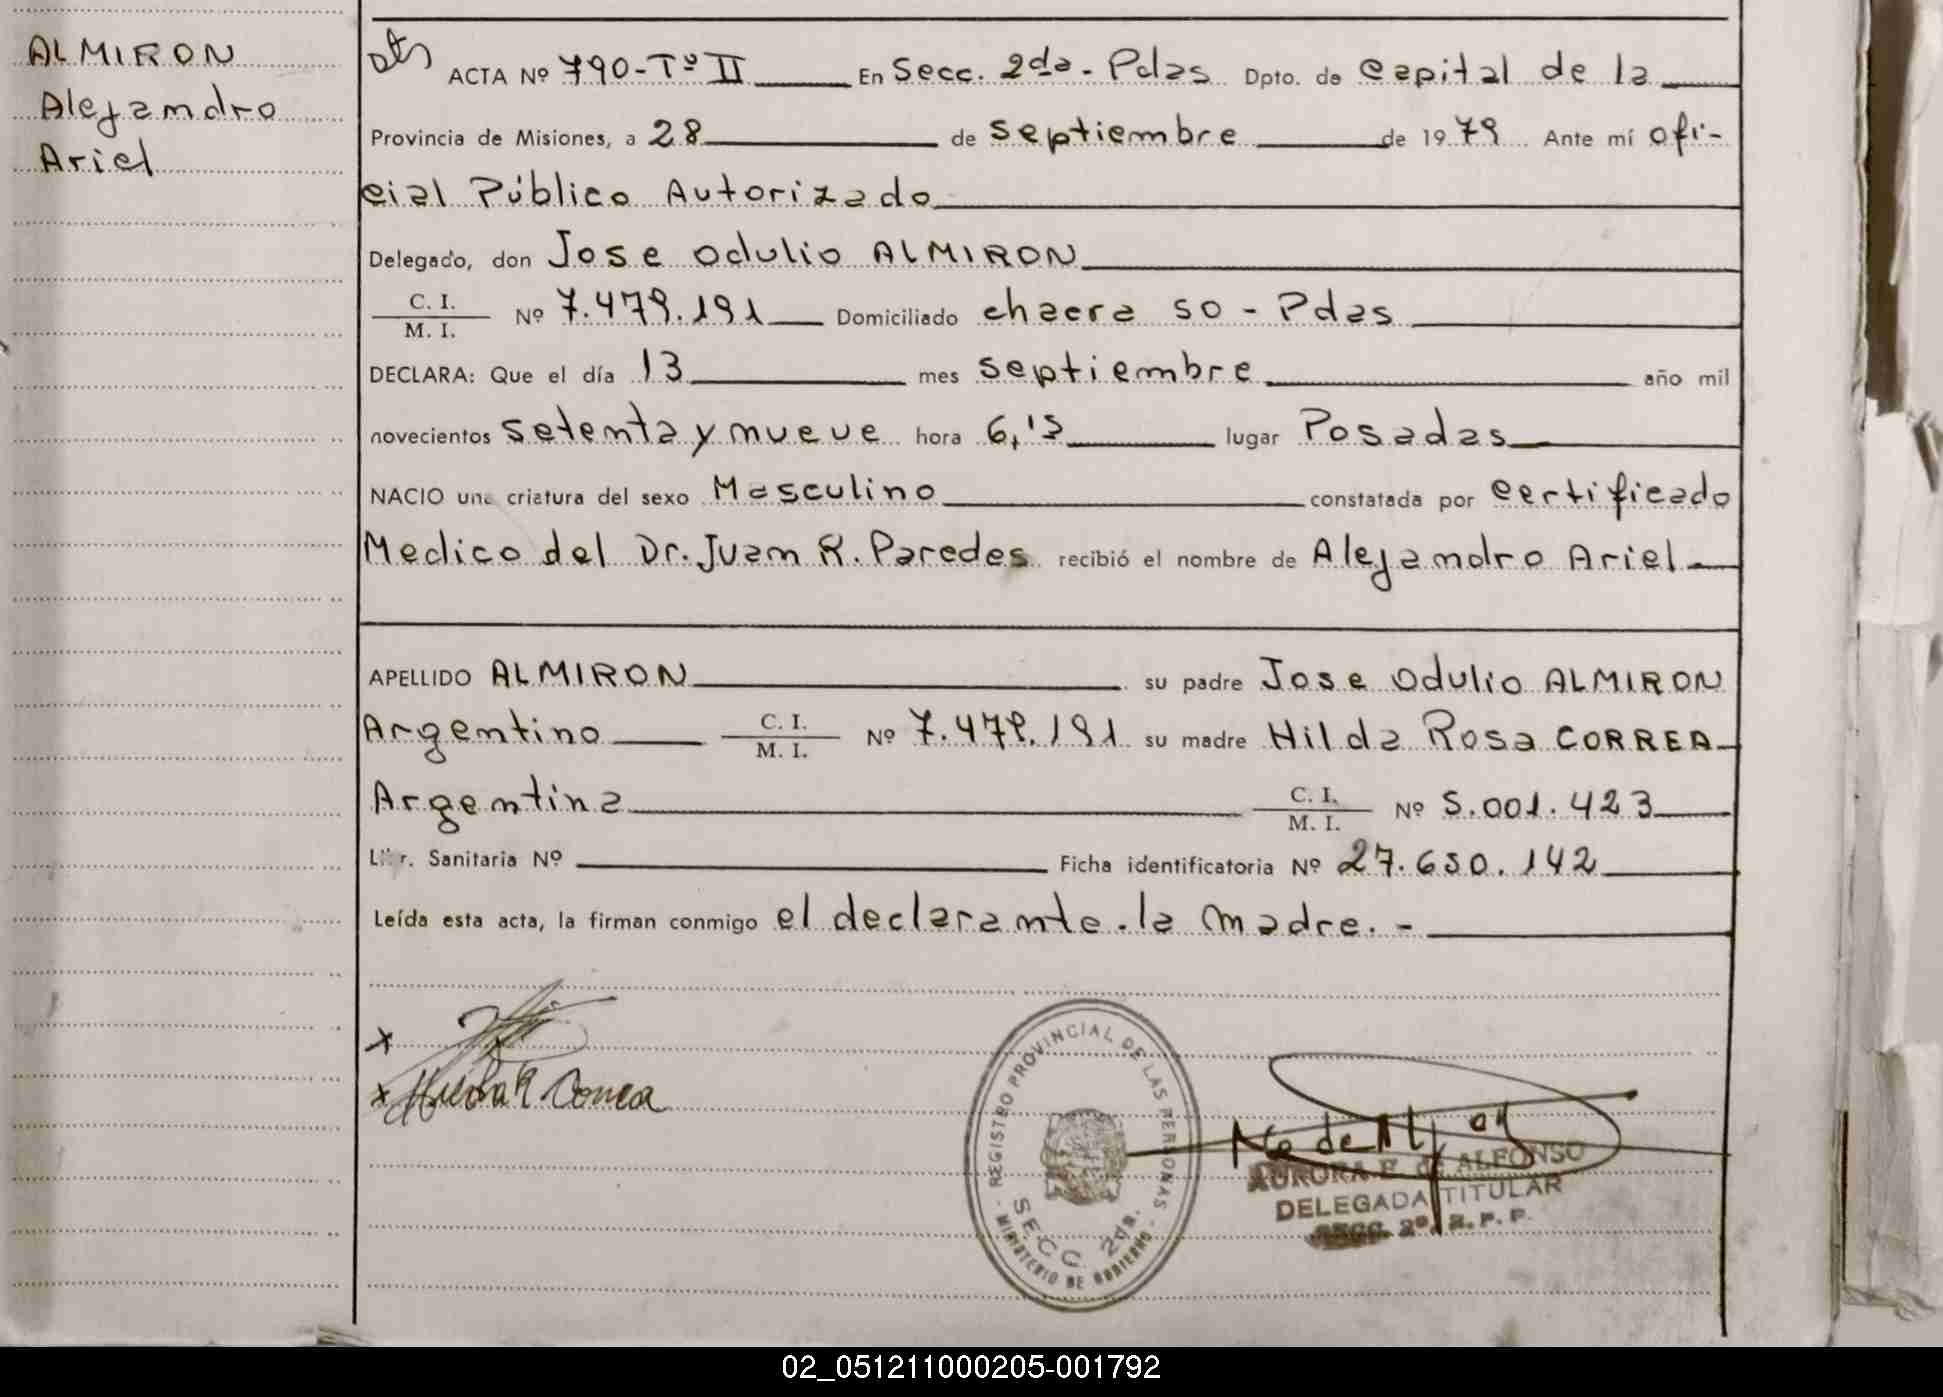 ALMIRON
Alejandro
Ariel
ACTA Nº 790-Tº II En Secc. 2da - Pdas Dpto. de Capital de la
Provincia de Misiones, a 28 de septiembre de 1979 Ante mí ofi-
cial Público Autorizado
Delegado, don Jose Odulio ALMIRON
C. I.
M. I. Nº 7.479.191 Domiciliado chacra 50 - Pdas
DECLARA: Que el día 13 mes septiembre año mil
novecientos setenta y nueve hora 6,15 lugar Posadas
NACIO una criatura del sexo Masculino constatada por certificado
Medico del Dr. Juan R. Paredes recibió el nombre de Alejandro Ariel
APELLIDO ALMIRON su padre Jose Odulio ALMIRON
Argentino C. I.
M. I. Nº 7.479.191 su madre Hilda Rosa CORREA
Argentina C. I.
M. I. Nº 5.001.423
Libr. Sanitaria Nº Ficha identificatoria Nº 27.650.142
Leída esta acta, la firman conmigo el declarante. la madre. -
REGISTRO PROVINCIAL DE LAS PERSONAS
MINISTERIO DE GOBIERNO
SECC. 2da.
Hilda R Correa
AURORA E. de ALFONSO
DELEGADA TITULAR
SECC. 2ª. R. P. P.
02_051211000205-001792